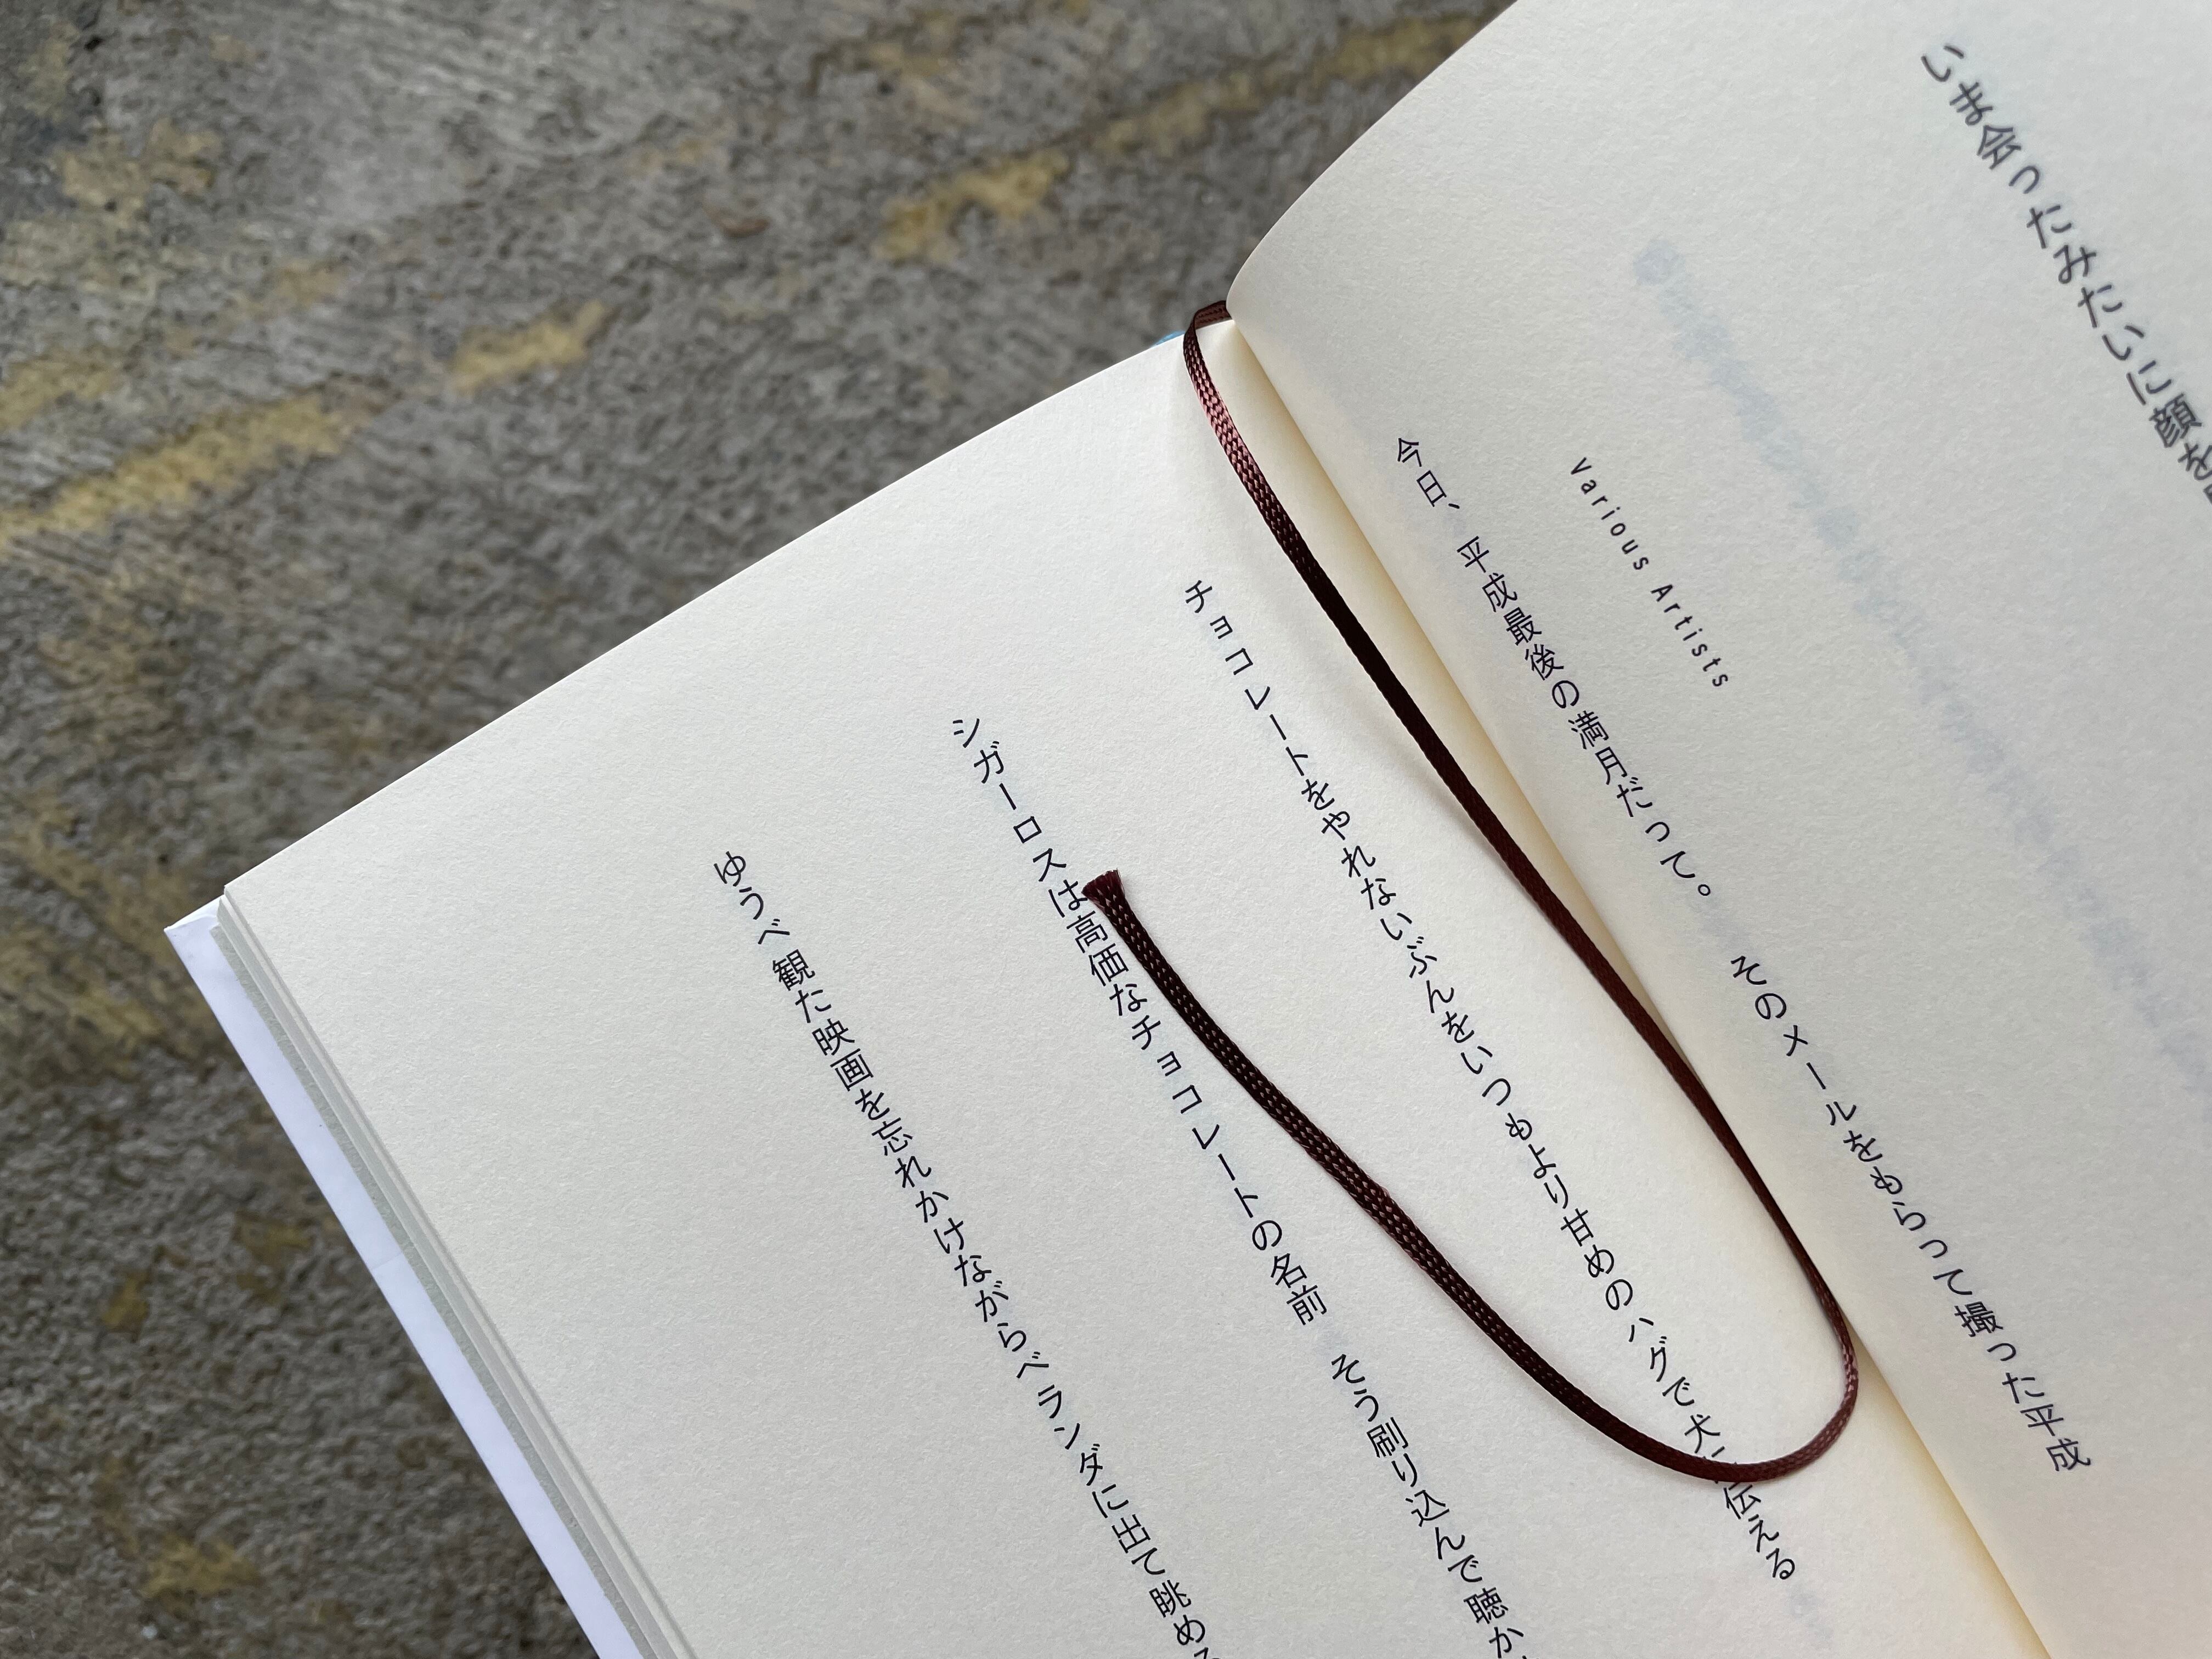 いま会ったみたいに顔を
Various Artists
今日、平成最後の満月だって。 そのメールをもらって撮った平成
チョコレートをやれないぶんをいつもより甘めのハグで犬に伝える
シガーロスは高価なチョコレートの名前 そう刷り込んで聴か
ゆうべ観た映画を忘れかけながらベランダに出て眺める